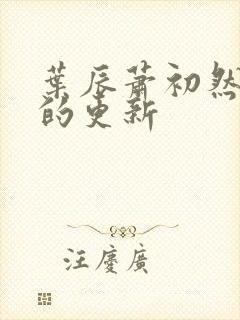 葉辰蕭初然
的更新
汪慶廣